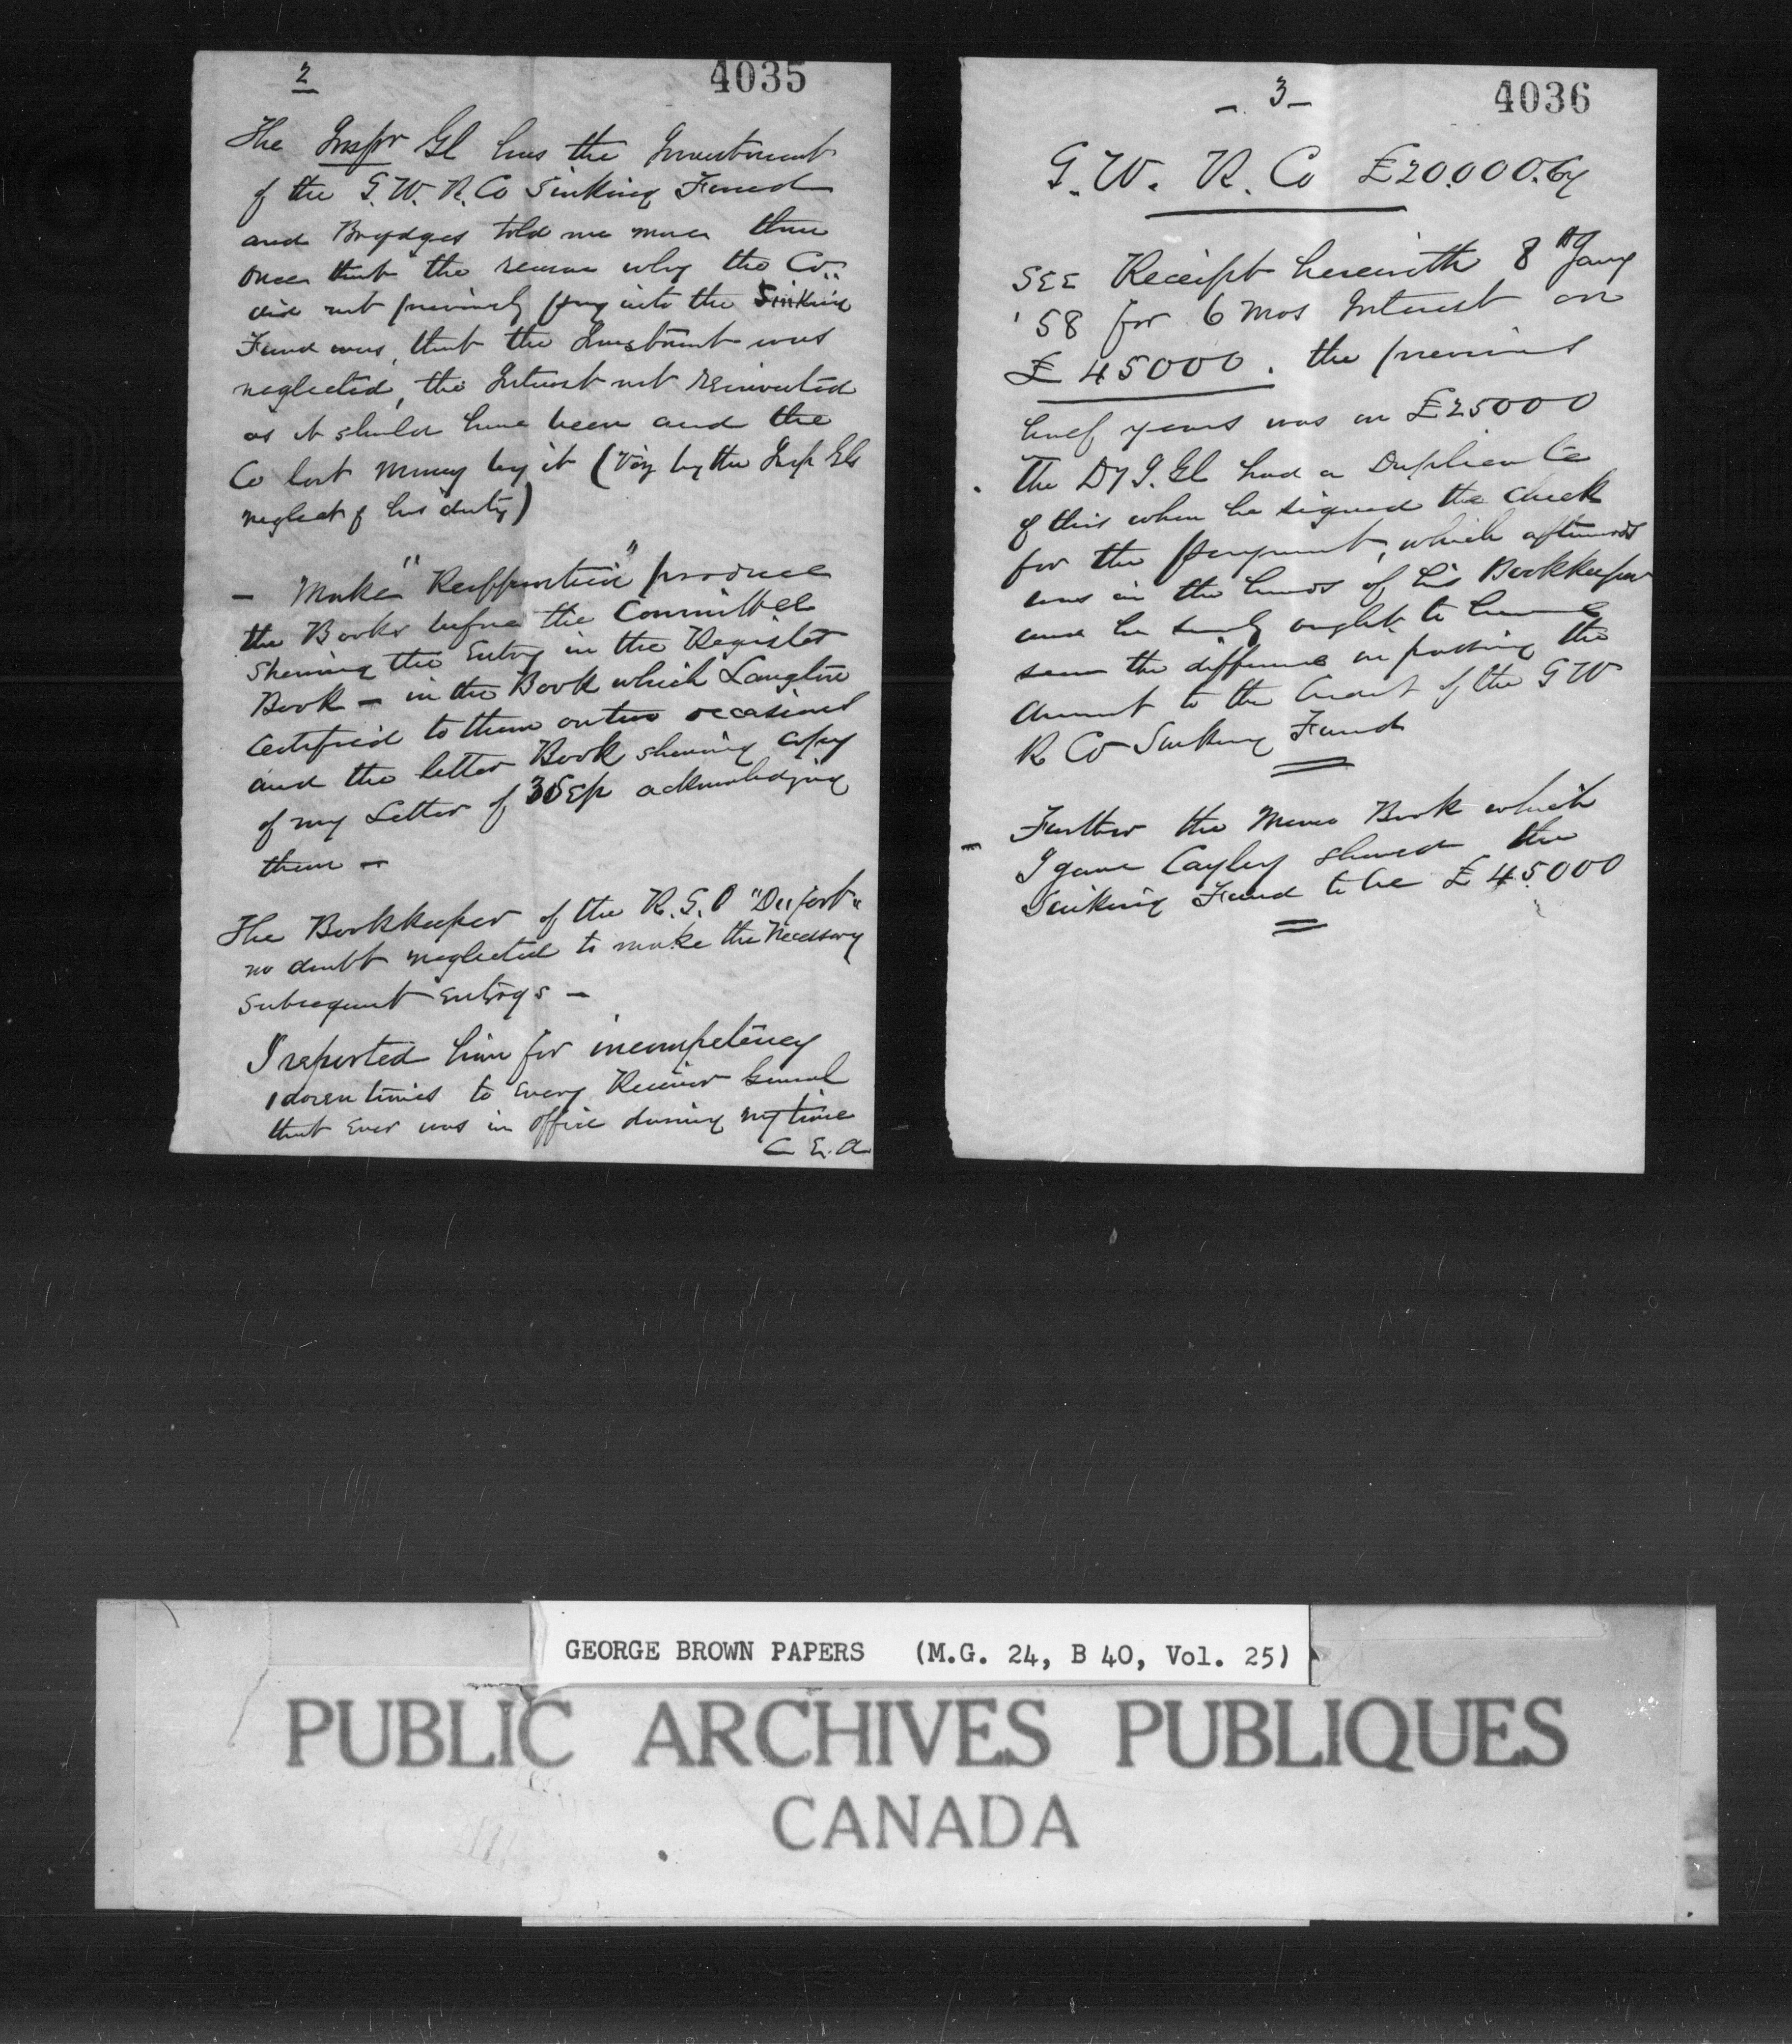 2
4035
The Inspr Gl has the Investment
of the G. W. R. Co Sinking Fund
and Brydges told me more than
once that the reason why the Co..
did not previously pay into the Sinking
Fund was, that the Investment was
neglected, the Interest not reinvested
as it should have been and the
Co lost money by it (Viz by the Insp Gls
neglect of his duty)
- Make "Reiffenstein" produce
the Books before the Committee
shewing the Entry in the Register
Book - in the Book which Langton
certified to them on two occasions
and the letter Book shewing copy
of my Letter of 30 Sep acknowledging
them -
The Bookkeeper of the R. G. O "Dufort"
no doubt neglected to make the necessary
subsequent entrys -
I reported him for incompetency
1 dozen times to every Receiver General
that ever was in office during my time
C E. A
- 3 -
4036
G. W. R. Co £20.000.
SEE Receipt herewith 8th Jany
'58 for 6 mos Interest on
£45000. the previous
half years was on £25000
The Dy I. Gl had a Duplicate
of this when he signed the check
for the payment, which afterwards
was in the hands of his Bookkeeper
and he surely ought to have
seen the difference in passing the
amount to the Credit of the G W
R Co Sinking Fund
- Further the Memo Book which
I gave Cayley shewed the
Sinking Fund to be £45000
GEORGE BROWN PAPERS (M.G. 24, B 40, Vol. 25)
PUBLIC ARCHIVES PUBLIQUES
CANADA